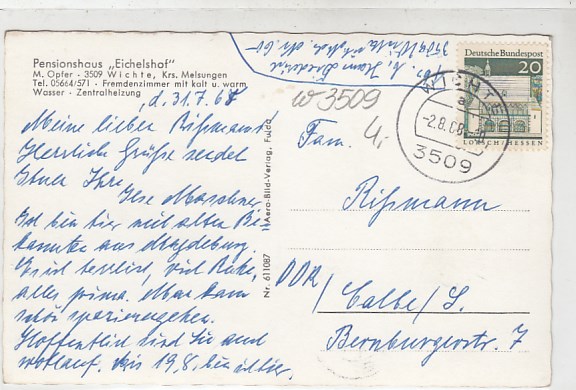 Pensionshaus „Eichelshof"
M. Opfer - 3509 Wichte, Krs. Melsungen
Tel. 05664/571 - Fremdenzimmer mit kalt u. warm
Wasser - Zentralheizung
d. 31.7.68
Meine lieben Rißmanns!
Herzliche Grüße sendet
Ihnen Ihre
Ilse
Ich bin hier mit alten Be-
kannten aus Magdeburg.
Es ist herrlich, viel Ruhe,
alles prima. Man kann
schön spazierengehen.
Hoffentlich sind Sie auch
wohlauf. bis 19.8. bin ich hier.
Nr. 611087 Aero-Bild-Verlag, Fulda
3509 Wichte
w 3509
4,-
Deutsche Bundespost
20
LORSCH/HESSEN
WICHTE
a
-2.8.68
3509
Fam.
Rißmann
DDR/Calbe/S.
Bernburgerstr. 7